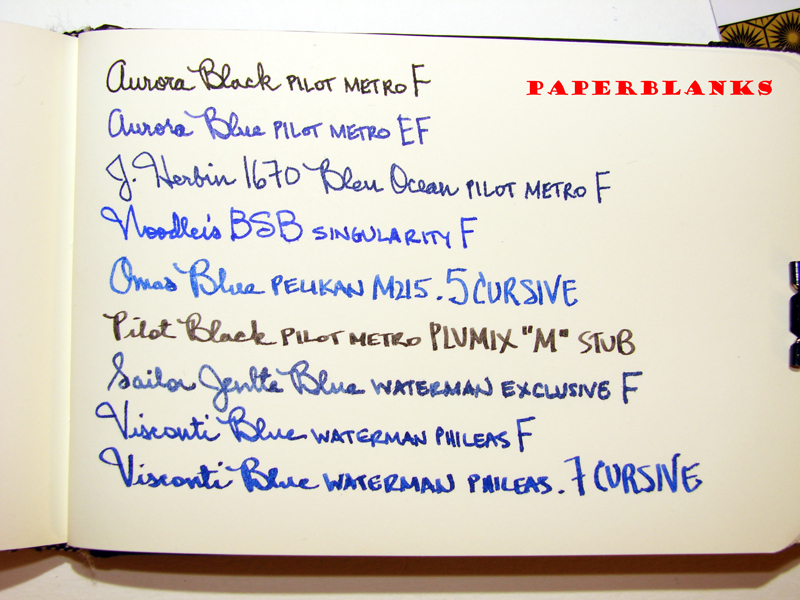 Aurora Black PILOT METRO F
PAPERBLANKS
Aurora Blue PILOT METRO EF
J. Herbin 1670 Bleu Ocean PILOT METRO F
Noodler's BSB SINGULARITY F
Omas Blue PELIKAN M215 .5 CURSIVE
Pilot Black PILOT METRO PLUMIX "M" STUB
Sailor Jentle Blue WATERMAN EXCLUSIVE F
Visconti Blue WATERMAN PHILEAS F
Visconti Blue WATERMAN PHILEAS .7 CURSIVE